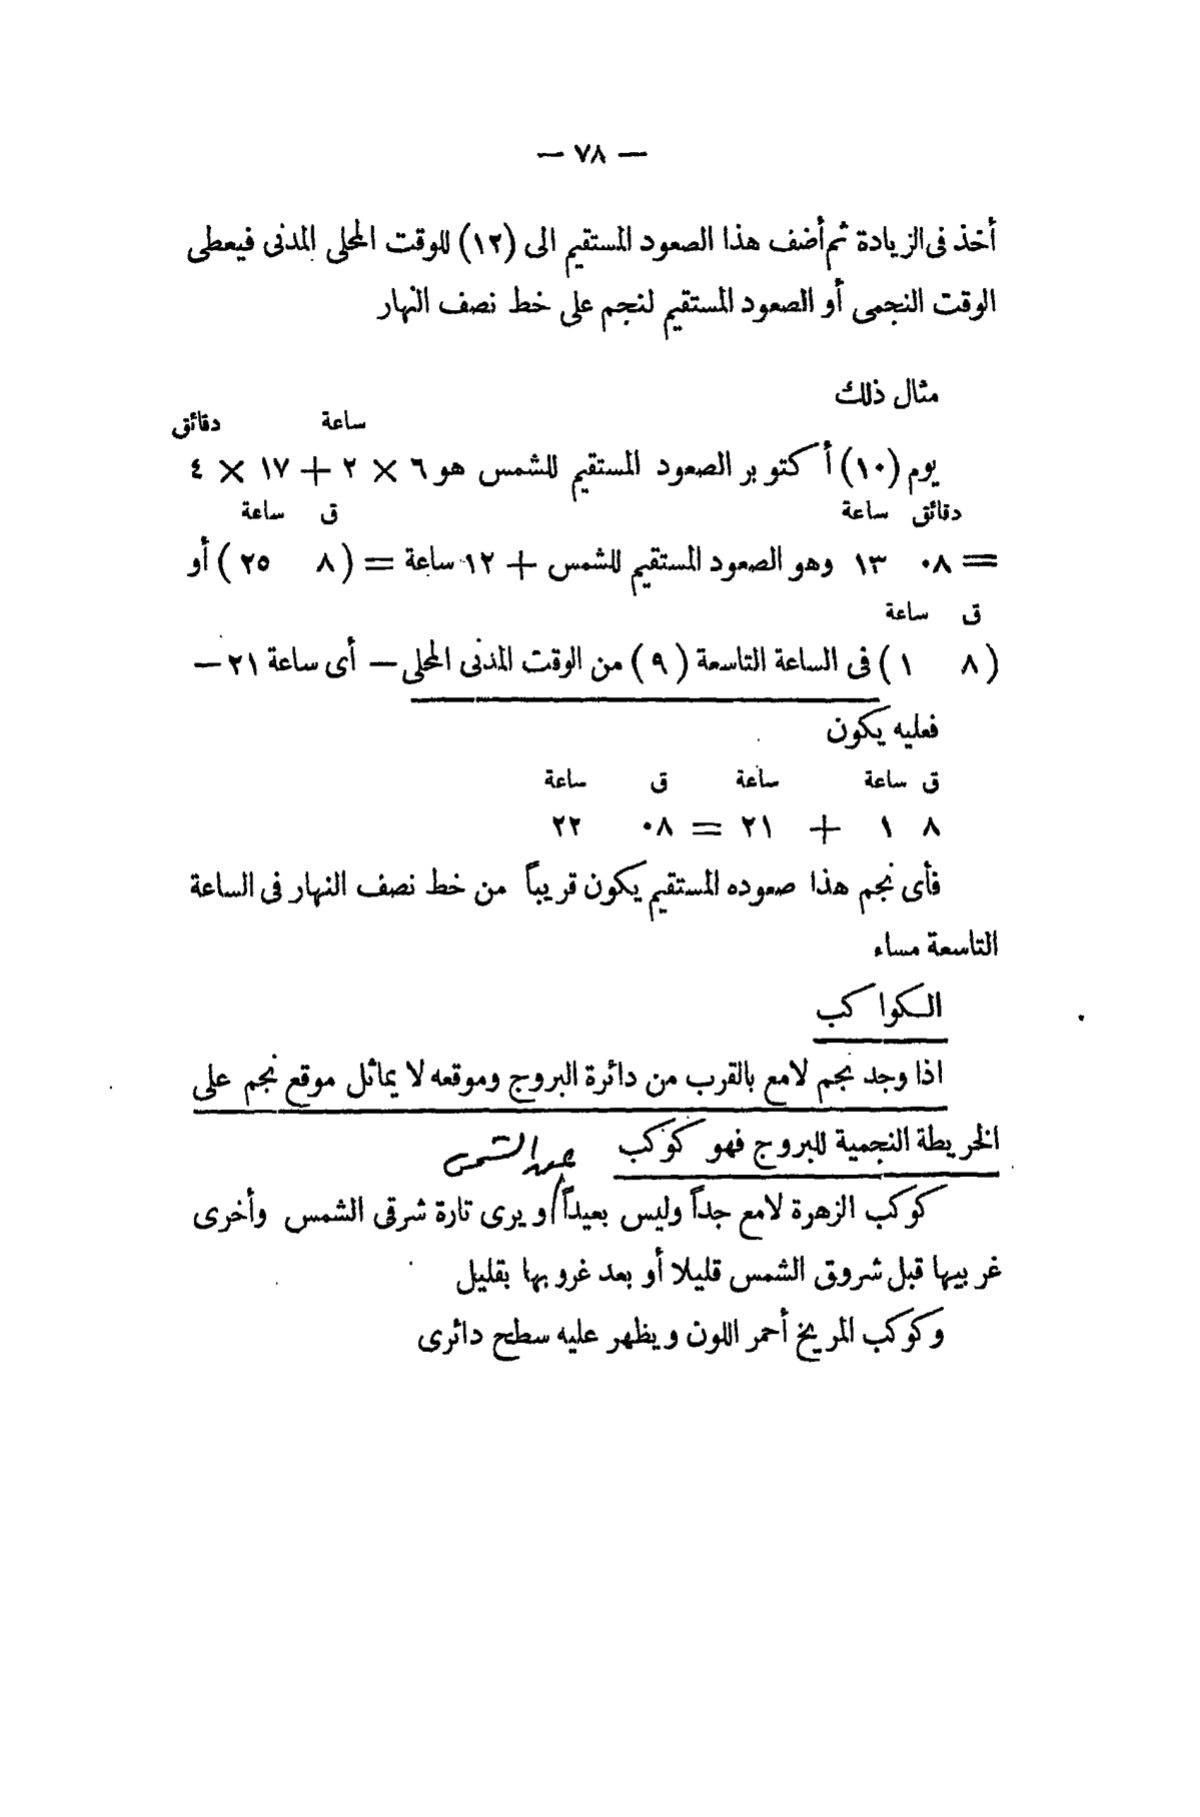 — ٧٨ —
أخذ فى الزيادة ثم أضف هذا الصعود المستقيم الى (١٢) للوقت المحلى المدنى فيعطى
الوقت النجمى أو الصعود المستقيم لنجم على خط نصف النهار
مثال ذلك
ساعة دقائق
يوم (١٠) أكتوبر الصعود المستقيم للشمس هو ٦ × ٢ + ١٧ × ٤
دقائق ساعة ق ساعة
= ٠٨ ١٣ وهو الصعود المستقيم للشمس + ١٢ ساعة = (٨ ٢٥) أو
ق ساعة
(٨ ١) فى الساعة التاسعة (٩) من الوقت المدنى المحلى — أى ساعة ٢١ —
فعليه يكون
ق ساعة ساعة ق ساعة
٨ ١ + ٢١ = ٠٨ ٢٢
فأى نجم هذا صعوده المستقيم يكون قريباً من خط نصف النهار فى الساعة
التاسعة مساء
الكواكب
اذا وجد نجم لامع بالقرب من دائرة البروج وموقعه لا يماثل موقع نجم على
الخريطة النجمية للبروج فهو كوكب
عهد الشمس
كوكب الزهرة لامع جداً وليس بعيداً ويرى تارة شرقى الشمس وأخرى
غربيها قبل شروق الشمس قليلا أو بعد غروبها بقليل
وكوكب المريخ أحمر اللون ويظهر عليه سطح دائرى